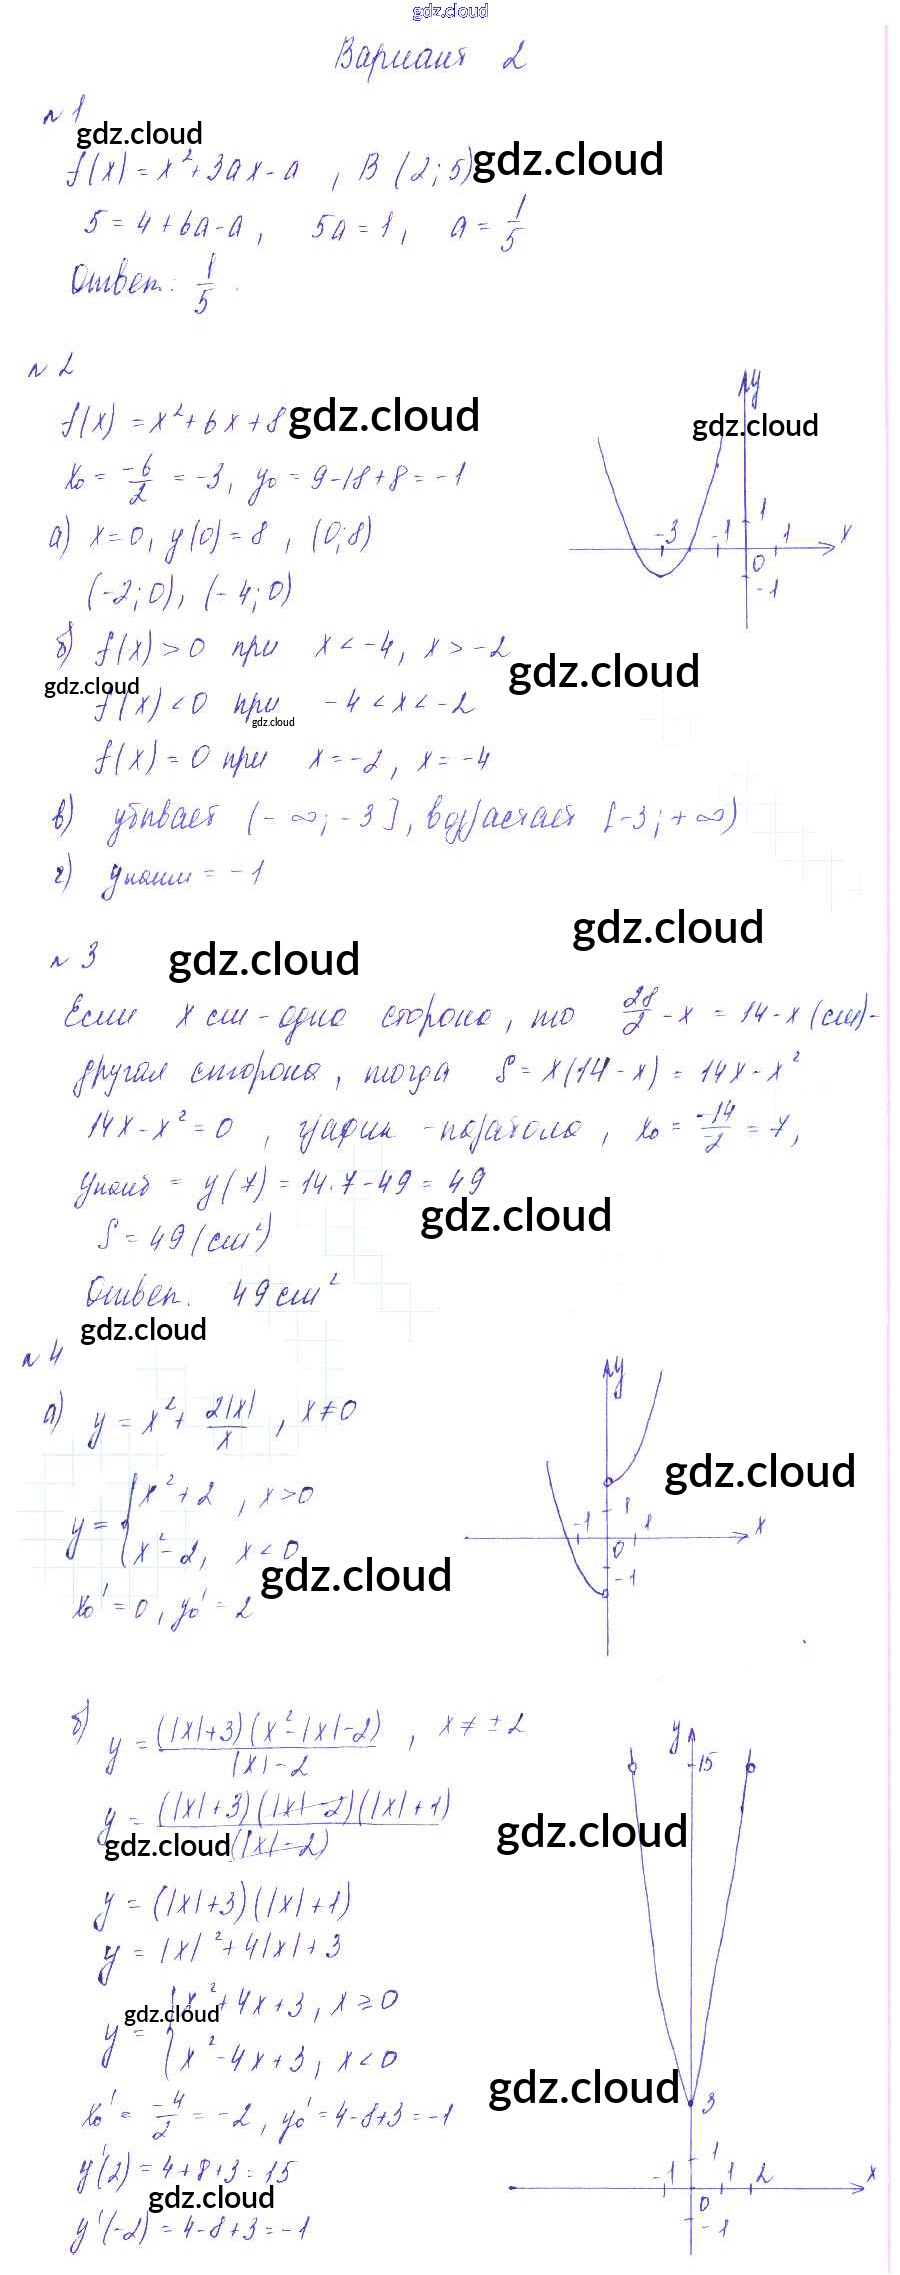 gdz.cloud
Вариант 2
№1
gdz.cloud
f(x) = x²+3ax-a , B (2;5) gdz.cloud
5 = 4+6a-a, 5a = 1, a = 1/5
Ответ: 1/5.
№2
f(x) = x²+6x+8 gdz.cloud
x₀ = -6/2 = -3, y₀ = 9-18+8 = -1
а) x=0, y(0) = 8 , (0;8)
(-2;0), (-4;0)
y
gdz.cloud
1
-3 -1 1 x
0
-1
б) f(x) > 0 при x < -4, x > -2
gdz.cloud
gdz.cloud
f(x) < 0 при -4 < x < -2
gdz.cloud
f(x) = 0 при x = -2, x = -4
в) убывает (-∞;-3], возрастает [-3;+∞)
г) yнаим = -1
gdz.cloud
№3 gdz.cloud
Если x см - одна сторона, то 28/2 - x = 14-x (см)-
другая сторона, тогда S = x(14-x) = 14x-x²
14x-x² = 0 , график - парабола, x₀ = -14/-2 = 7,
yнаиб = y(7) = 14·7-49 = 49
gdz.cloud
S = 49 (см²)
Ответ. 49 см²
gdz.cloud
№4
а) y = x² + 2|x|/x , x≠0
y = { x²+2 , x>0
x²-2, x<0
gdz.cloud
x₀' = 0, y₀' = 2
y
gdz.cloud
1
-1 1 x
0
-1
б) y = (|x|+3)(x²-|x|-2)/|x|-2 , x ≠ ±2
y = (|x|+3)(|x|-2)(|x|+1)/(|x|-2)
gdz.cloud
gdz.cloud
y = (|x|+3)(|x|+1)
y = |x|²+4|x|+3
y = { x²+4x+3, x ≥ 0
gdz.cloud
x²-4x+3, x<0
gdz.cloud
x₀' = -4/2 = -2, y₀' = 4-8+3 = -1
y'(2) = 4+8+3 = 15
gdz.cloud
y'(-2) = 4-8+3 = -1
y
15
3
1
-1 1 2 x
0
-1